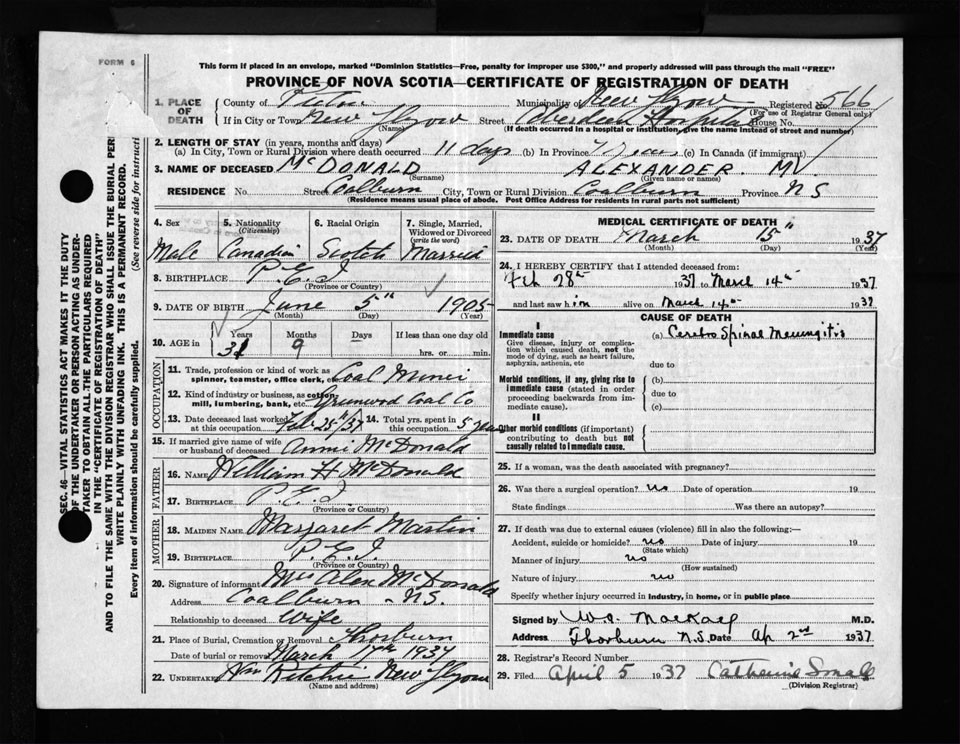 FORM 6
This form if placed in an envelope, marked "Dominion Statistics—Free, penalty for improper use $300," and properly addressed will pass through the mail "FREE"
PROVINCE OF NOVA SCOTIA—CERTIFICATE OF REGISTRATION OF DEATH
1. PLACE OF DEATH
County of Pictou Municipality of New Glasgow Registered No. 566
(For use of Registrar General only)
If in City or Town New Glasgow Street Aberdeen Hospital House No.
(Name) (If death occurred in a hospital or institution, give the name instead of street and number)
2. LENGTH OF STAY (in years, months and days)
(a) In City, Town or Rural Division where death occurred 11 days (b) In Province years (c) In Canada (if immigrant)
3. NAME OF DECEASED McDONALD ALEXANDER. MV.
(Surname) (Given name or names)
RESIDENCE No. Street Coalburn City, Town or Rural Division Coalburn Province N S
(Residence means usual place of abode. Post Office Address for residents in rural parts not sufficient)
4. Sex Male
5. Nationality (Citizenship) Canadian
6. Racial Origin Scotch
7. Single, Married, Widowed or Divorced (write the word) Married
8. BIRTHPLACE P.E.I
(Province or Country)
9. DATE OF BIRTH June 5" 1905
(Month) (Day) (Year)
10. AGE in Years 31 Months 9 Days If less than one day old hrs. or min.
OCCUPATION
11. Trade, profession or kind of work as spinner, teamster, office clerk, etc. Coal Miner
12. Kind of industry or business, as cotton mill, lumbering, bank, etc. Greenwood Coal Co
13. Date deceased last worked at this occupation Feb 25"/37
14. Total yrs. spent in this occupation 5
15. If married give name of wife or husband of deceased Annie McDonald
FATHER
16. Name William H McDonald
17. Birthplace P.E.I
(Province or Country)
MOTHER
18. Maiden Name Margaret Martin
19. Birthplace P.E.I.
(Province or Country)
20. Signature of informant Mrs Alex McDonald
Address Coalburn - N.S.
Relationship to deceased Wife
21. Place of Burial, Cremation or Removal Thorburn
Date of burial or removal March 17th 1937
22. Undertaker Wm Ritchie New Glasgow
(Name and address)
MEDICAL CERTIFICATE OF DEATH
23. DATE OF DEATH March 15" 1937
(Month) (Day) (Year)
24. I HEREBY CERTIFY that I attended deceased from:
Feb 28th 1937 to March 14th 1937
and last saw him alive on March 14th 1937
CAUSE OF DEATH
I
Immediate cause
Give disease, injury or complication which caused death, not the mode of dying, such as heart failure, asphyxia, asthenia, etc
(a) Cerebro Spinal Meningitis
due to
Morbid conditions, if any, giving rise to immediate cause (stated in order proceeding backwards from immediate cause).
(b)
due to
(c)
II
Other morbid conditions (if important) contributing to death but not causally related to immediate cause.
25. If a woman, was the death associated with pregnancy?
26. Was there a surgical operation? no Date of operation 19
State findings Was there an autopsy?
27. If death was due to external causes (violence) fill in also the following:—
Accident, suicide or homicide? no Date of injury 19
(State which)
Manner of injury no
(How sustained)
Nature of injury no
Specify whether injury occurred in industry, in home, or in public place
Signed by W.A. MacKay M.D.
Address Thorburn N.S. Date Ap 2nd 1937
28. Registrar's Record Number
29. Filed April 5 1937 Catharine
(Division Registrar)
SEC. 46—VITAL STATISTICS ACT MAKES IT THE DUTY
OF THE UNDERTAKER OR PERSON ACTING AS UNDER-
TAKER TO OBTAIN ALL THE PARTICULARS REQUIRED
IN THE "CERTIFICATE OF REGISTRATION OF DEATH"
AND TO FILE THE SAME WITH THE DIVISION REGISTRAR WHO SHALL ISSUE THE BURIAL PER
WRITE PLAINLY WITH UNFADING INK. THIS IS A PERMANENT RECORD.
Every item of information should be carefully supplied. (See reverse side for instructi